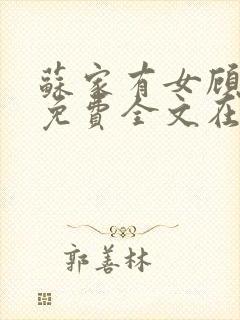 蘇家有女顾
免費全文在
郭善林